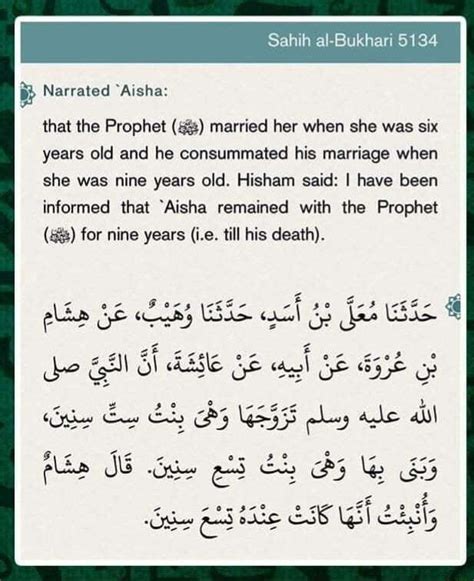 Sahih al-Bukhari 5134
Narrated `Aisha:
that the Prophet (ﷺ) married her when she was six
years old and he consummated his marriage when
she was nine years old. Hisham said: I have been
informed that `Aisha remained with the Prophet
(ﷺ) for nine years (i.e. till his death).
حَدَّثَنَا مُعَلَّى بْنُ أَسَدٍ، حَدَّثَنَا وُهَيْبٌ، عَنْ هِشَامِ
بْنِ عُرْوَةَ، عَنْ أَبِيهِ، عَنْ عَائِشَةَ، أَنَّ النَّبِيَّ صلى
الله عليه وسلم تَزَوَّجَهَا وَهْىَ بِنْتُ سِتِّ سِنِينَ،
وَبَنَى بِهَا وَهْىَ بِنْتُ تِسْعِ سِنِينَ. قَالَ هِشَامٌ
وَأُنْبِئْتُ أَنَّهَا كَانَتْ عِنْدَهُ تِسْعَ سِنِينَ.